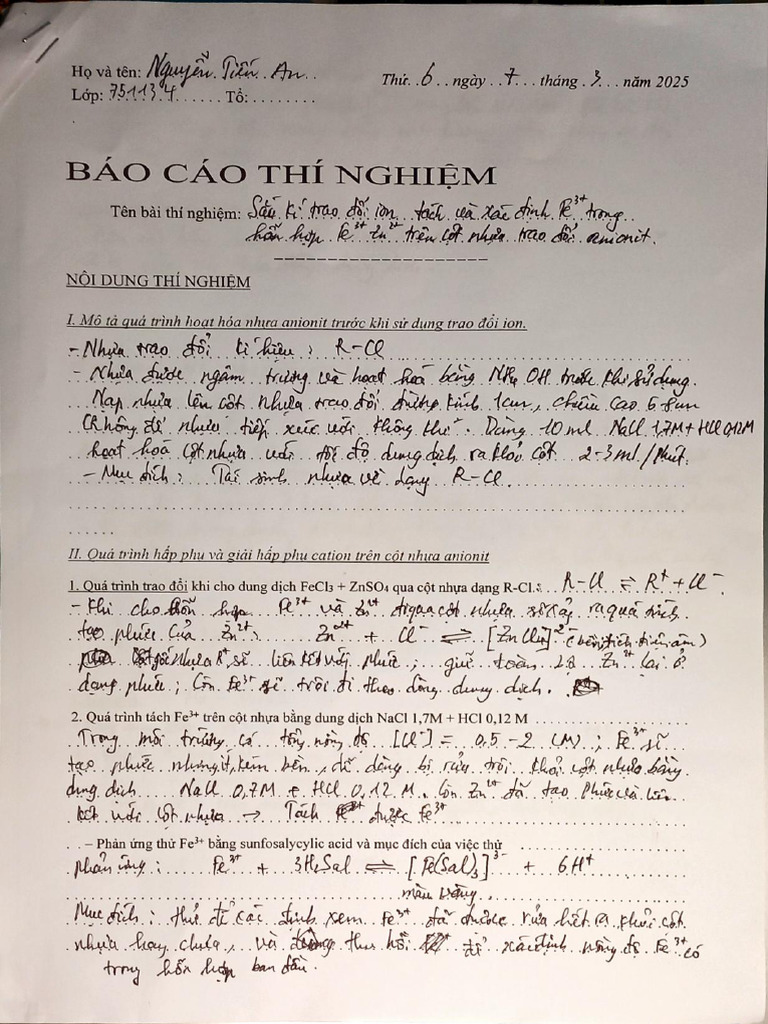 Họ và tên: Nguyễn Tiến An
Thứ 6 ngày 7 tháng 3 năm 2025
Lớp: 751134 Tổ:
BÁO CÁO THÍ NGHIỆM
Tên bài thí nghiệm: Sắc kí trao đổi ion tách và xác định Fe³⁺ trong
hỗn hợp Fe³⁺ Zn²⁺ trên cột nhựa trao đổi anionit.
NỘI DUNG THÍ NGHIỆM
I. Mô tả quá trình hoạt hóa nhựa anionit trước khi sử dụng trao đổi ion.
- Nhựa trao đổi kí hiệu: R-Cl
- Nhựa được ngâm trương và hoạt hoá bằng NH₄OH trước khi sử dụng.
Nạp nhựa lên cột nhựa trao đổi đường kính 1cm, chiều cao 6-8cm
(Không để nhựa tiếp xúc với không khí. Dùng 10 ml NaCl 1,7M + HCl 0,12M
hoạt hoá cột nhựa với tốc độ dung dịch ra khỏi cột 2-3 ml/phút.
- Mục đích: Tái sinh nhựa về dạng R-Cl.
II. Quá trình hấp phụ và giải hấp phụ cation trên cột nhựa anionit
1. Quá trình trao đổi khi cho dung dịch FeCl₃ + ZnSO₄ qua cột nhựa dạng R-Cl.: R-Cl ⇌ R⁺ + Cl⁻
- Khi cho hỗn hợp Fe³⁺ và Zn²⁺ đi qua cột nhựa sẽ xảy ra quá trình
tạo phức của Zn²⁺: Zn²⁺ + Cl⁻ ⇌ [ZnCl₄]²⁻ (bền, tích điện âm)
gốc nhựa R⁺ sẽ liên kết với phức; giữ toàn bộ Zn²⁺ lại ở
dạng phức; Còn Fe³⁺ sẽ trôi đi theo dòng dung dịch.
2. Quá trình tách Fe³⁺ trên cột nhựa bằng dung dịch NaCl 1,7M + HCl 0,12 M
Trong môi trường có tổng nồng độ [Cl⁻] = 0,5 - 2 (M); Fe³⁺ sẽ
tạo phức nhưng ít, kém bền, dễ dàng bị rửa trôi khỏi cột nhựa bằng
dung dịch NaCl 0,7M + HCl 0,12 M. Còn Zn²⁺ đã tạo phức và liên
kết với cột nhựa → Tách được Fe³⁺
– Phản ứng thử Fe³⁺ bằng sunfosalycylic acid và mục đích của việc thử
phản ứng: Fe³⁺ + 3H₂Sal ⇌ [Fe(Sal)₃]³⁻ + 6H⁺
màu vàng.
Mục đích: thử để xác định xem Fe³⁺ đã được rửa hết ra khỏi cột
nhựa hay chưa, và thu hồi để xác định nồng độ Fe³⁺ có
trong hỗn hợp ban đầu.